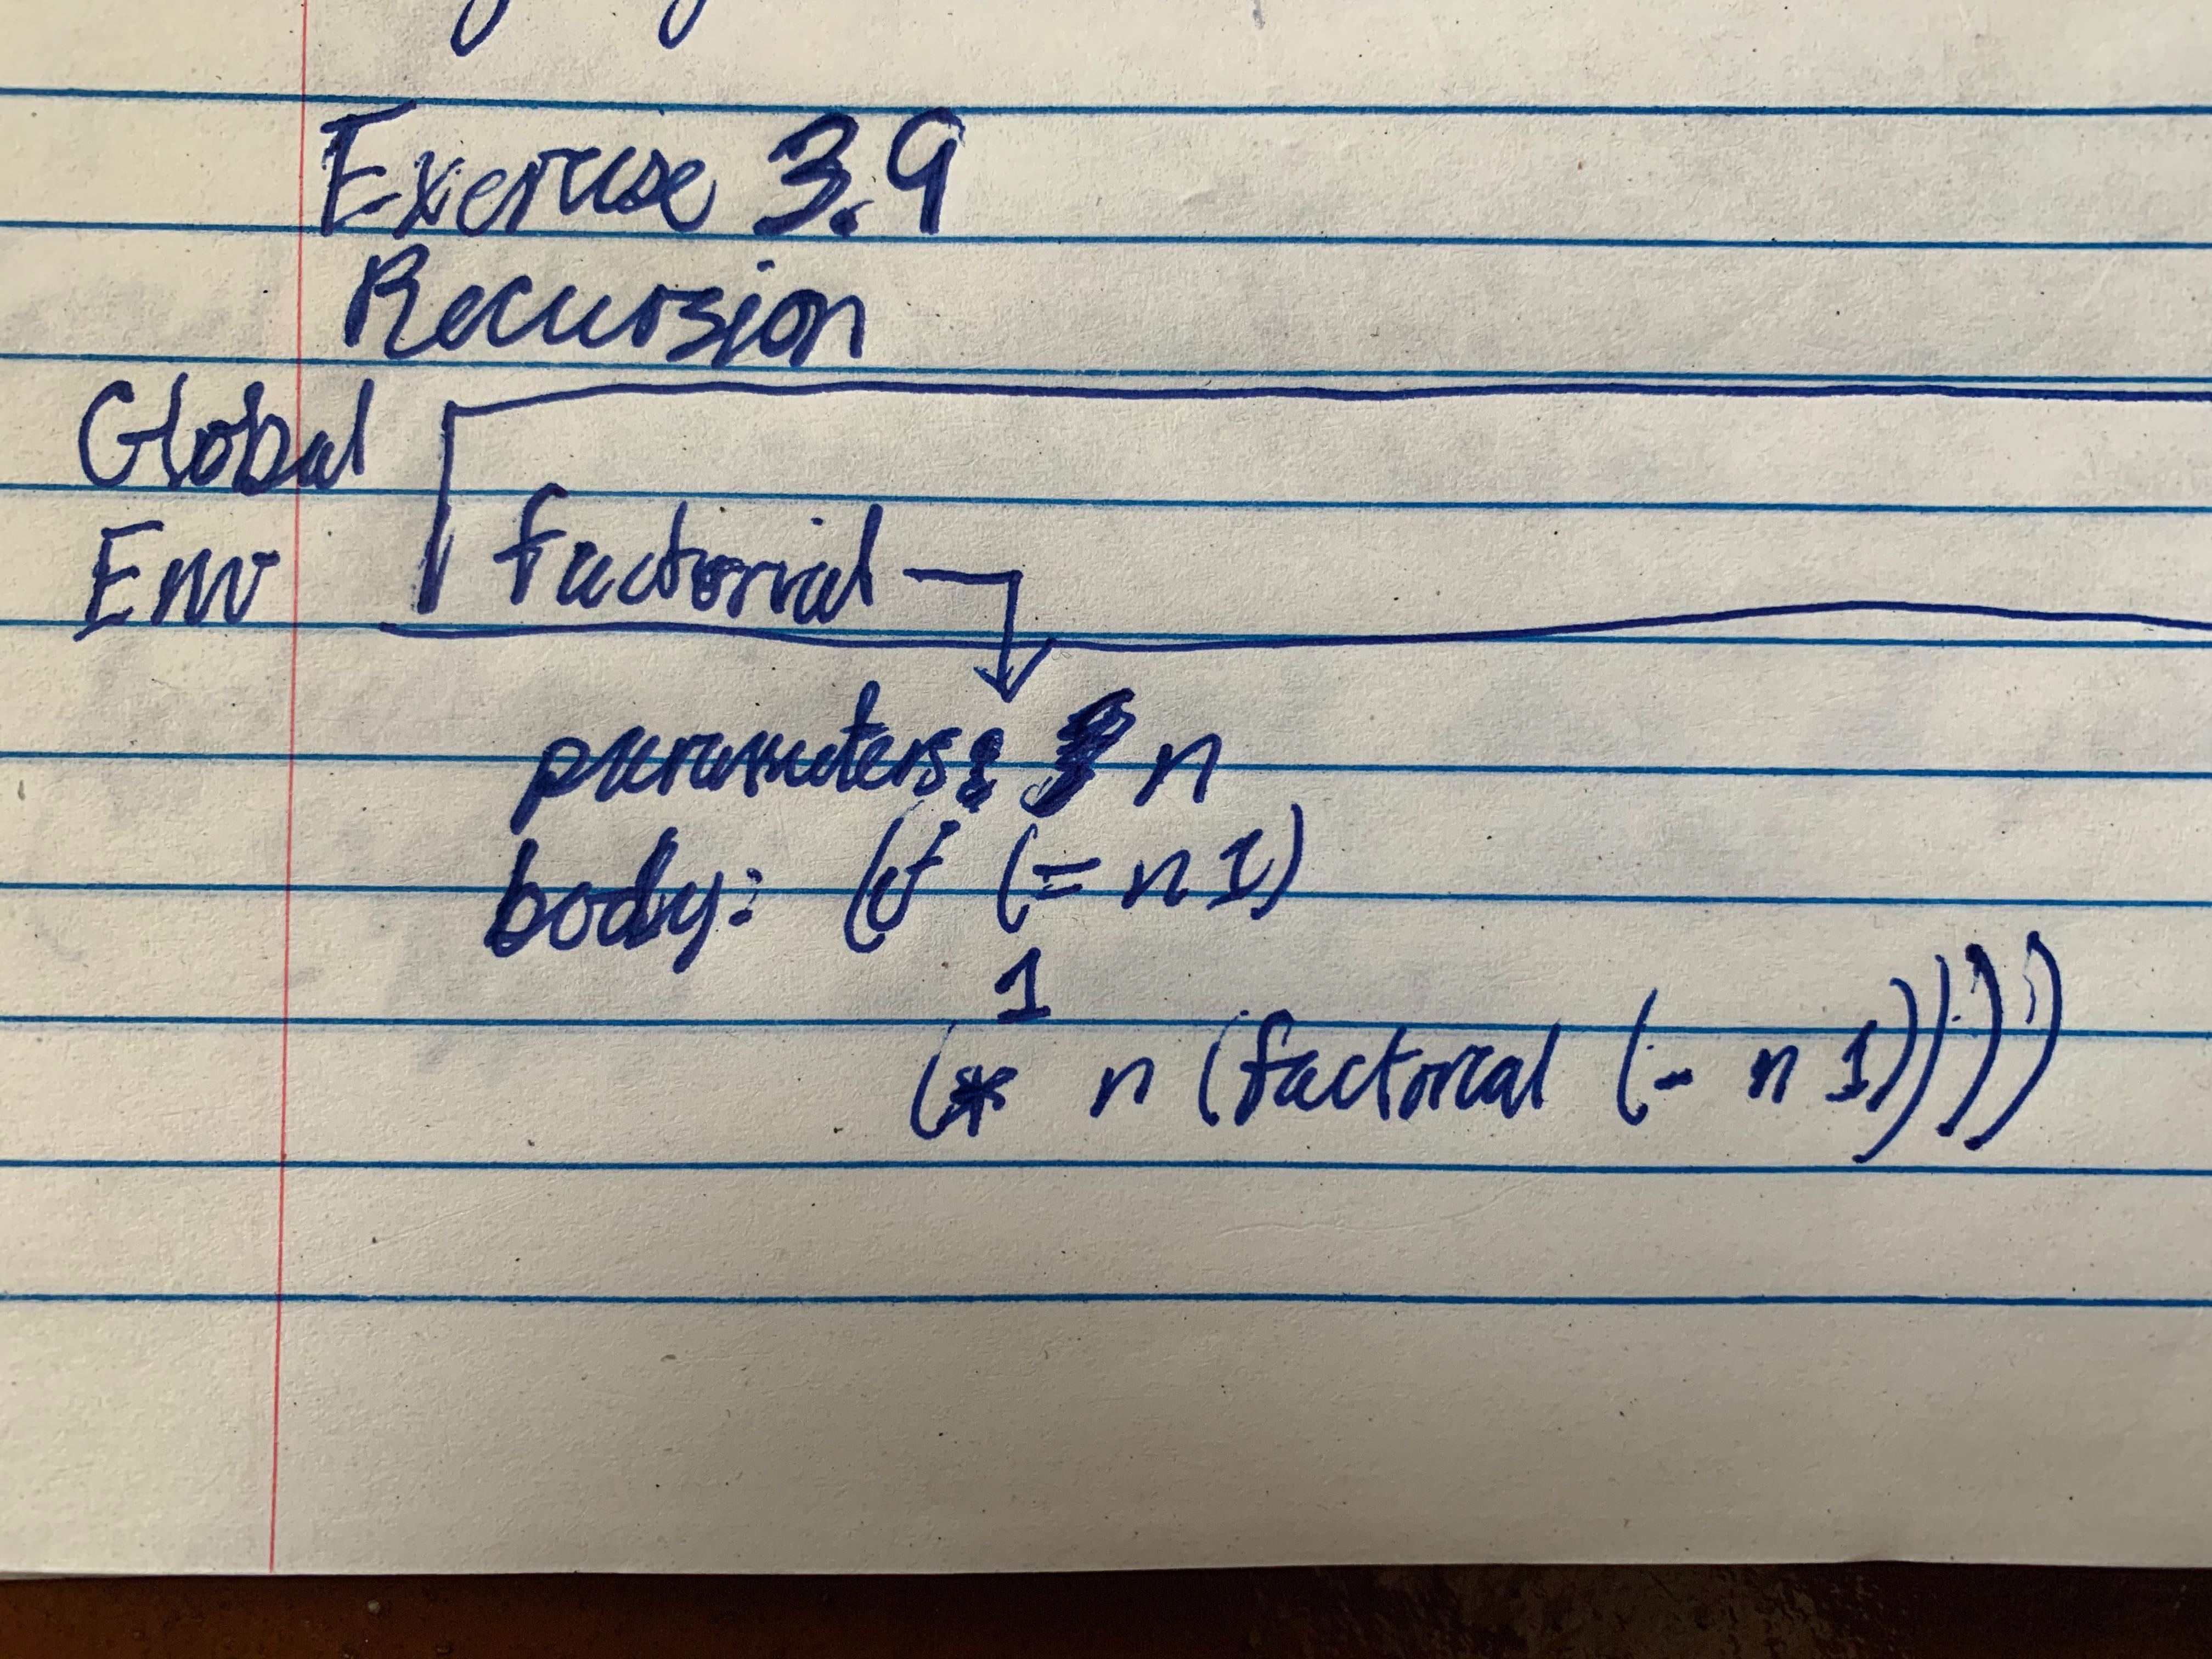 Exercise 3.9
Recursion
Global
Env
factorial
parameters: n
body: (if (= n 1)
1
(* n (factorial (- n 1))))